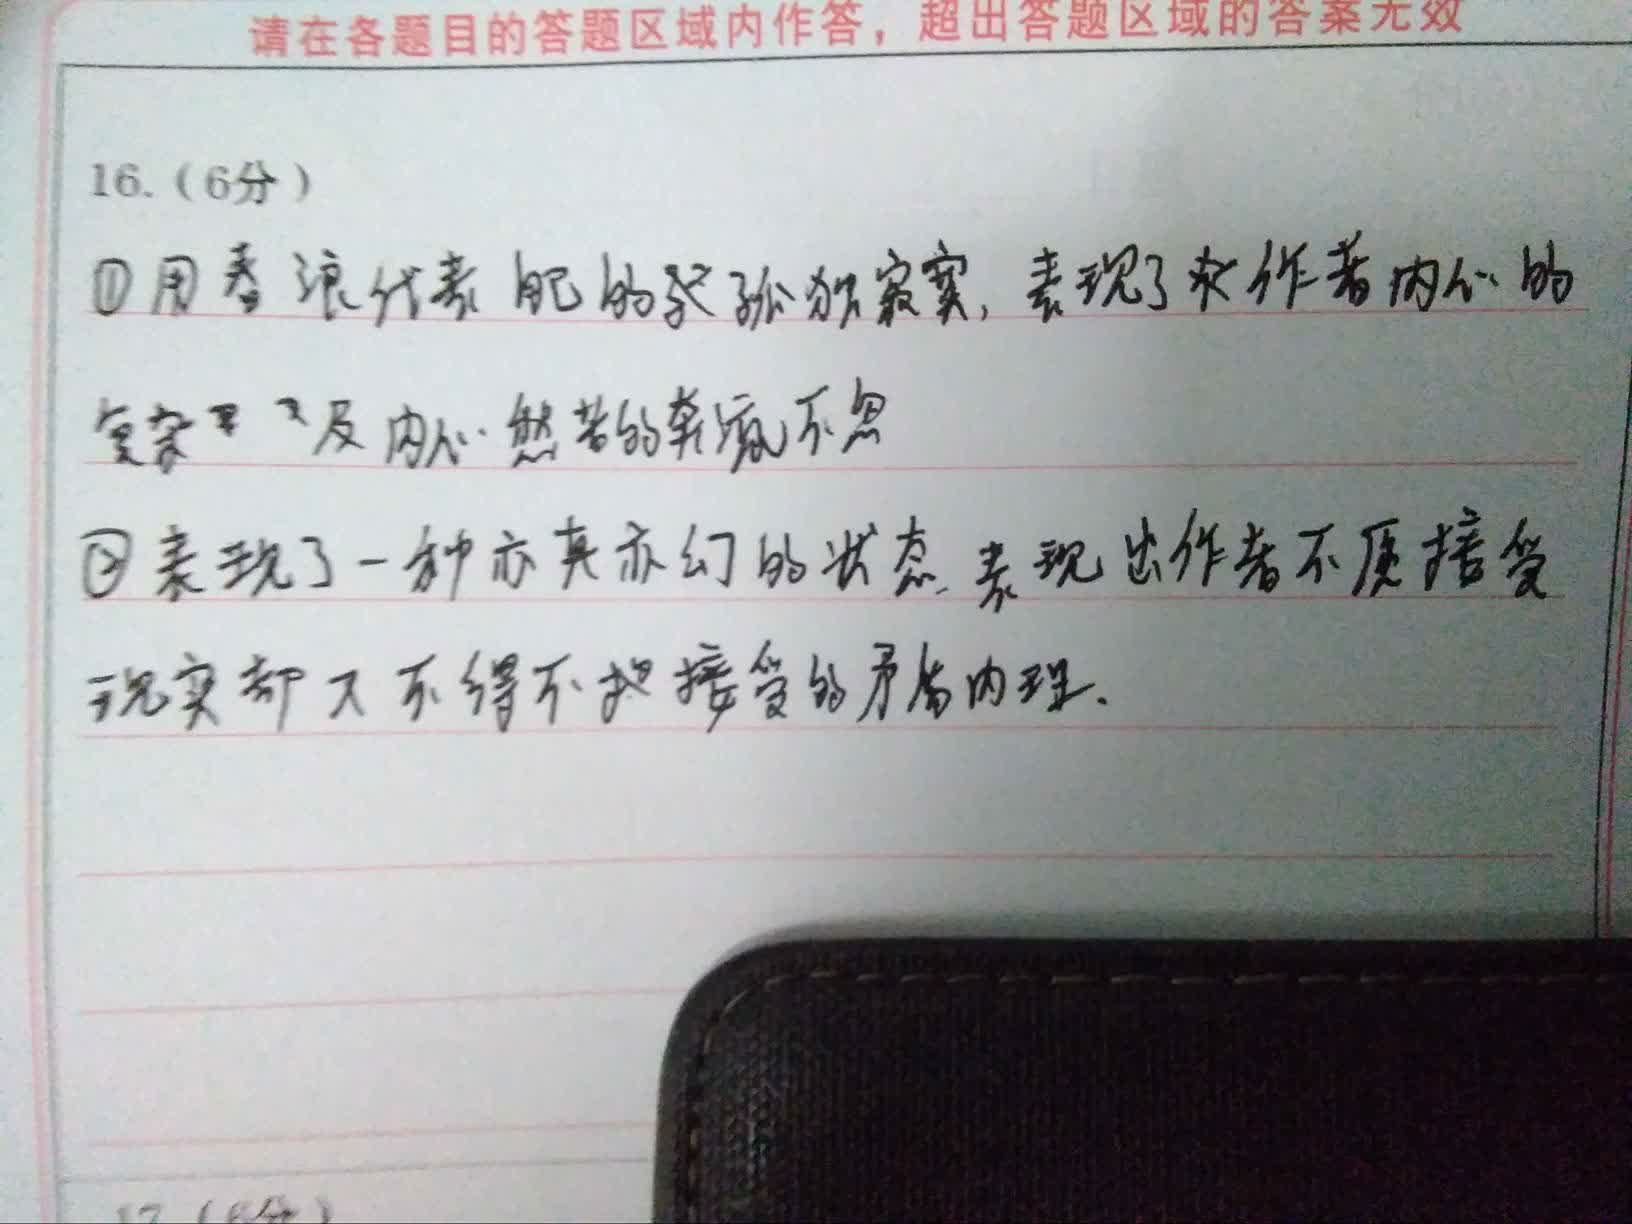 请在各题目的答题区域内作答，超出答题区域的答案无效
16.（6分）
①用春浪代表自己的孤独寂寞，表现了作者内心的
复杂及内心愁苦的奔流不息
②表现了一种亦真亦幻的状态，表现出作者不愿接受
现实却又不得不接受的矛盾内理.
17.（6分）